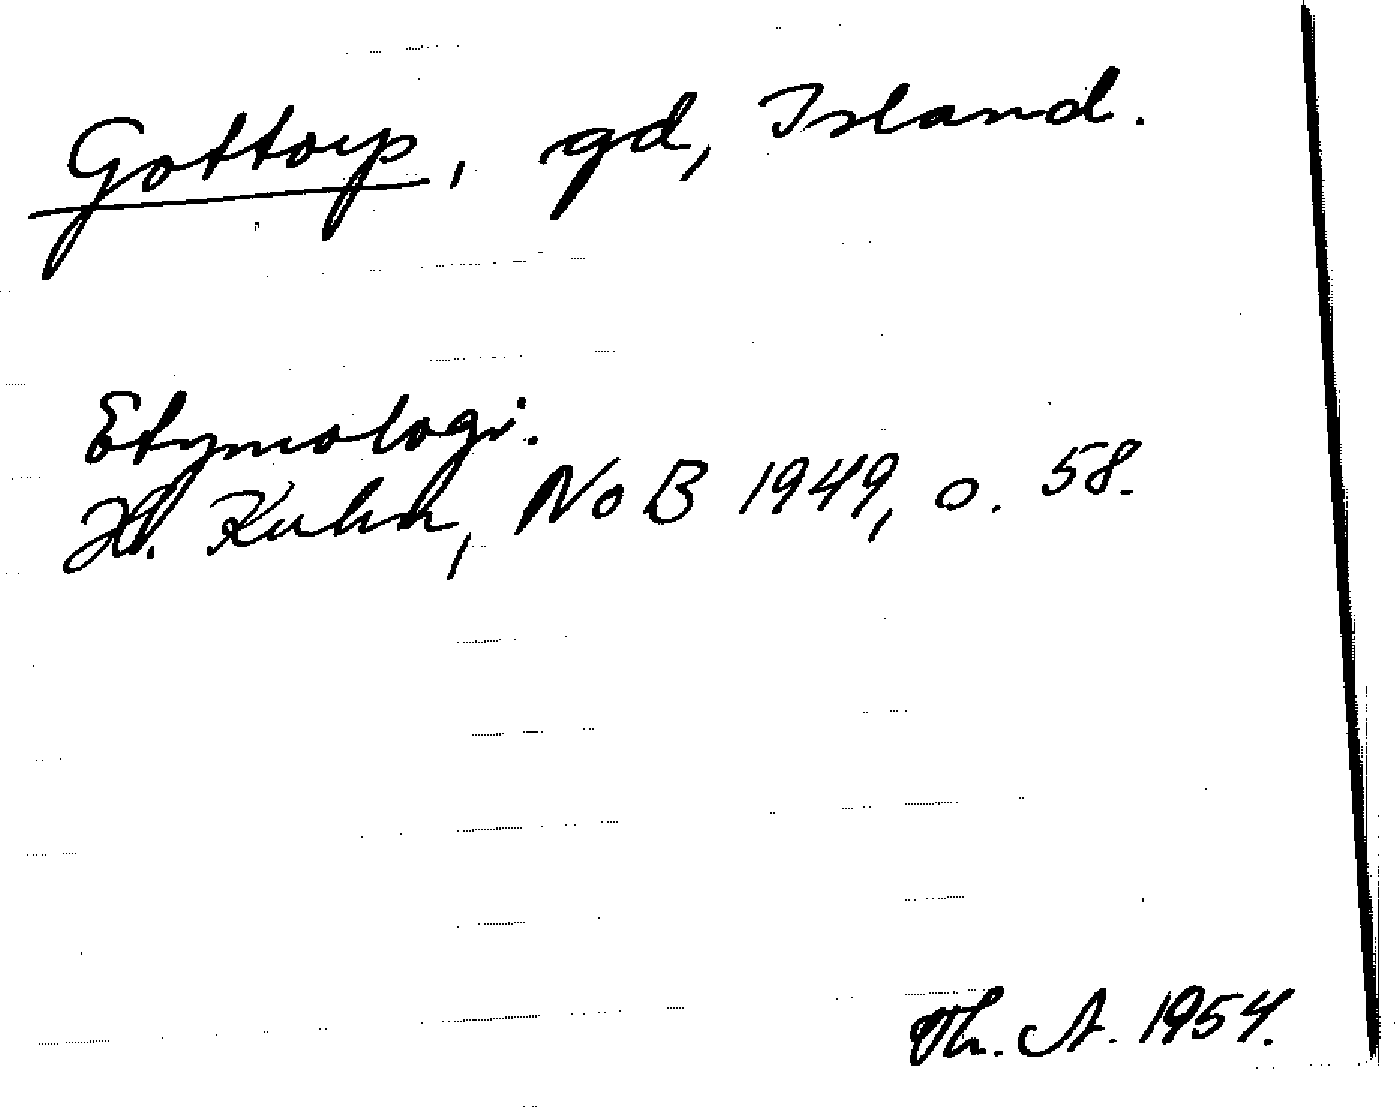 Gottorp, gd, Island.
Etymologi.
H. Kuhn, NoB 1949, s. 58.
Th. A. 1954.